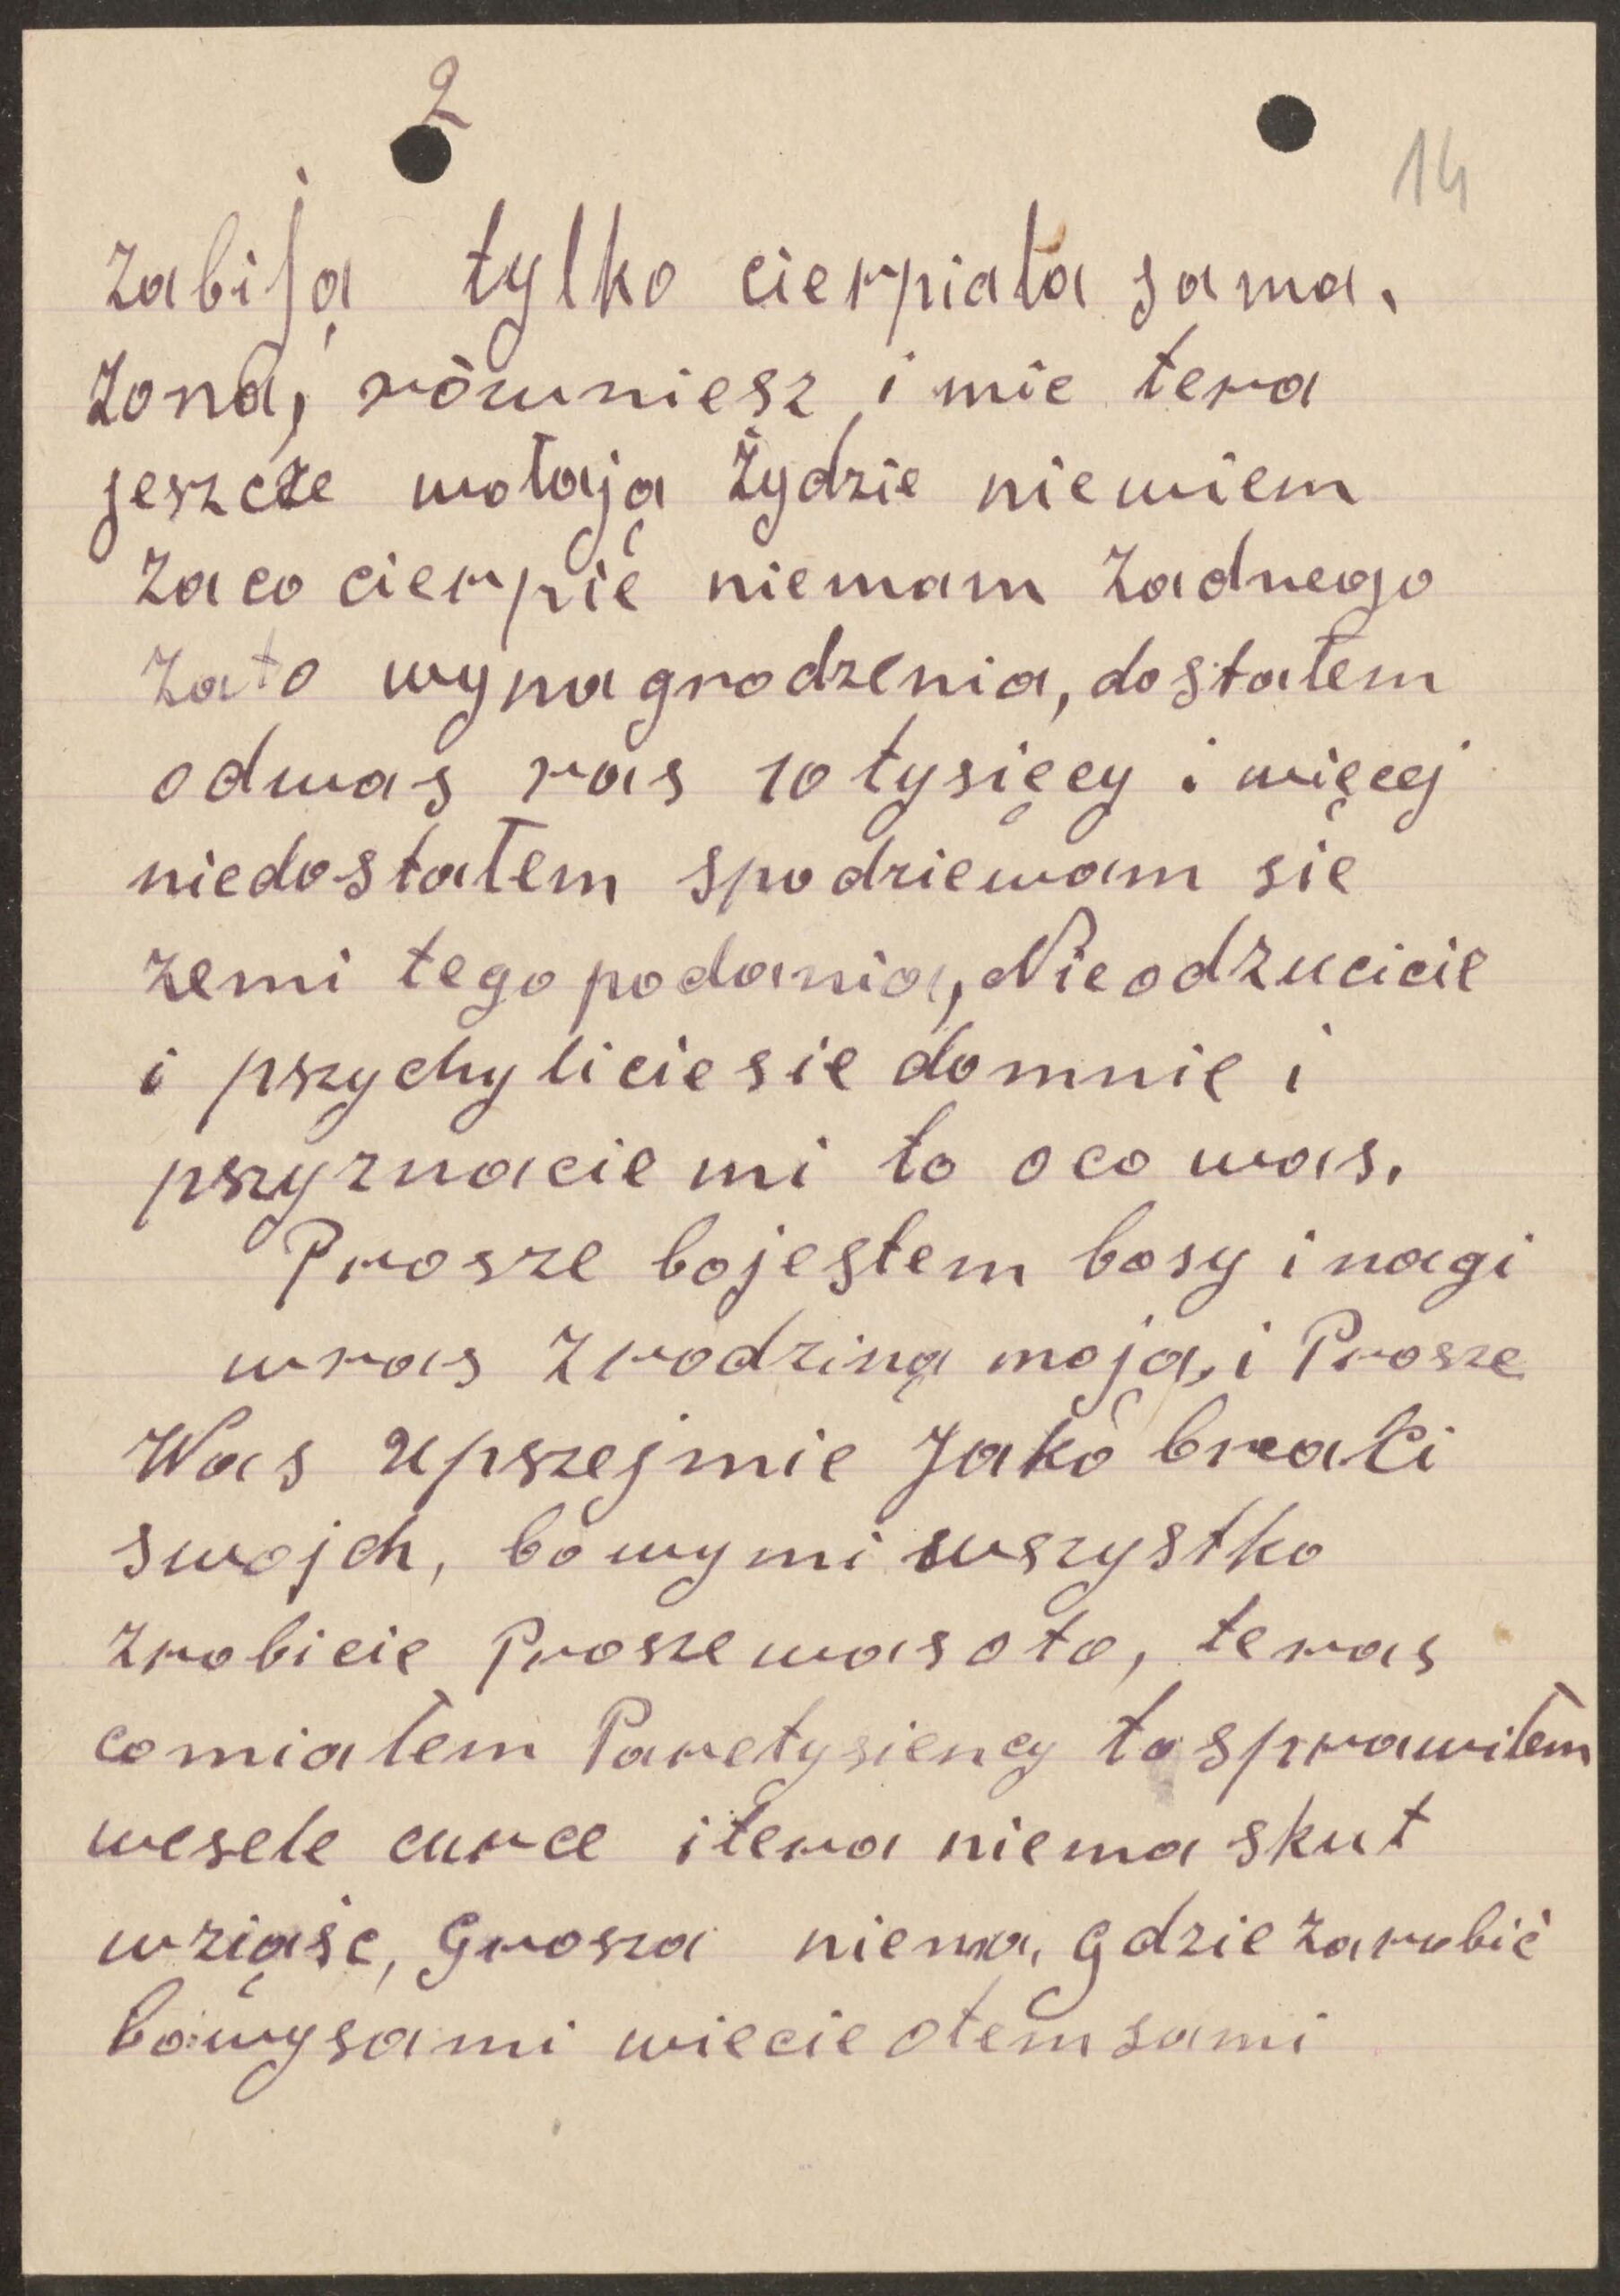 2
14
zabiją tylko cierpiała sama.
żona, równiesz i mie tera
jeszcze wołają Żydzie niewiem
zaco cierpić niemam żadnego
zato wynagrodzenia, dostałem
odwas ras 10 tysięcy i więcej
niedostałem spodziewam sie
zemi tego podania, Nieodzucicie
i pszychyliciesie domnie i
pszyznacie mi to oco was.
Prosze bojestem bosy i nagi
wras zrodziną moją, i Prosze
Was upszejmie Jako braci
swojch, bo wymi wszystko
zrobicie Prosze wasoto, teras
comiałem Paretysiency to sprawiłem
wesele curce itera niema skut
wziąść, Grosza niema, gdzie zarubić
bo wysami wiecie otem sami